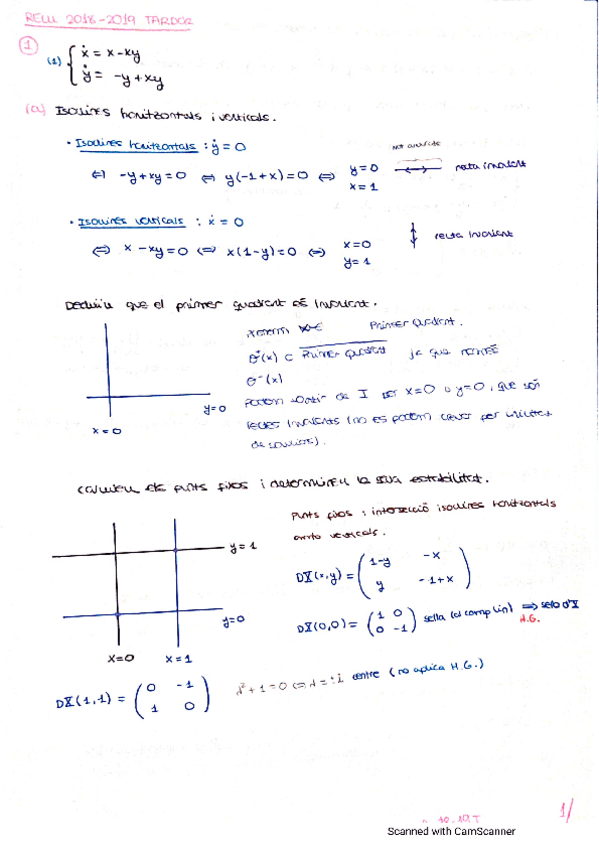 RELU 2018-2019 TARDOR
1
(1) { ẋ = x-xy
ẏ = -y+xy
(a) Isoclines horitzontals i verticals.
• Isoclines horitzontals : ẏ = 0
⇔ -y+xy=0 ⇔ y(-1+x)=0 ⇔ y=0 ↔ recta invariant
x=1
• Isoclines verticals : ẋ = 0
⇔ x-xy=0 ⇔ x(1-y)=0 ⇔ x=0 ↕ recta invariant
y=1
Deduïu que el primer quadrant és invariant.
Primer Quadrant.
θ⁺(x) ⊂ Primer Quadrant ja que només
θ⁻(x)
podem sortir de I per x=0 o y=0, que són
rectes invariants (no es poden creuar per unicitat
de solucions).
y=0
x=0
Calculeu els punts fixos i determineu la seva estabilitat.
Punts fixos : intersecció isoclines horitzontals
amb verticals.
y=1
DX(x,y) = ( 1-y -x
y -1+x )
y=0
DX(0,0) = ( 1 0
0 -1 ) sella (el comp lin) ⇒ sella d'X
H.G.
x=0 x=1
DX(1,1) = ( 0 -1
1 0 ) λ²+1=0 ⇔ λ=±i centre (no aplica H.G.)
1/
Scanned with CamScanner